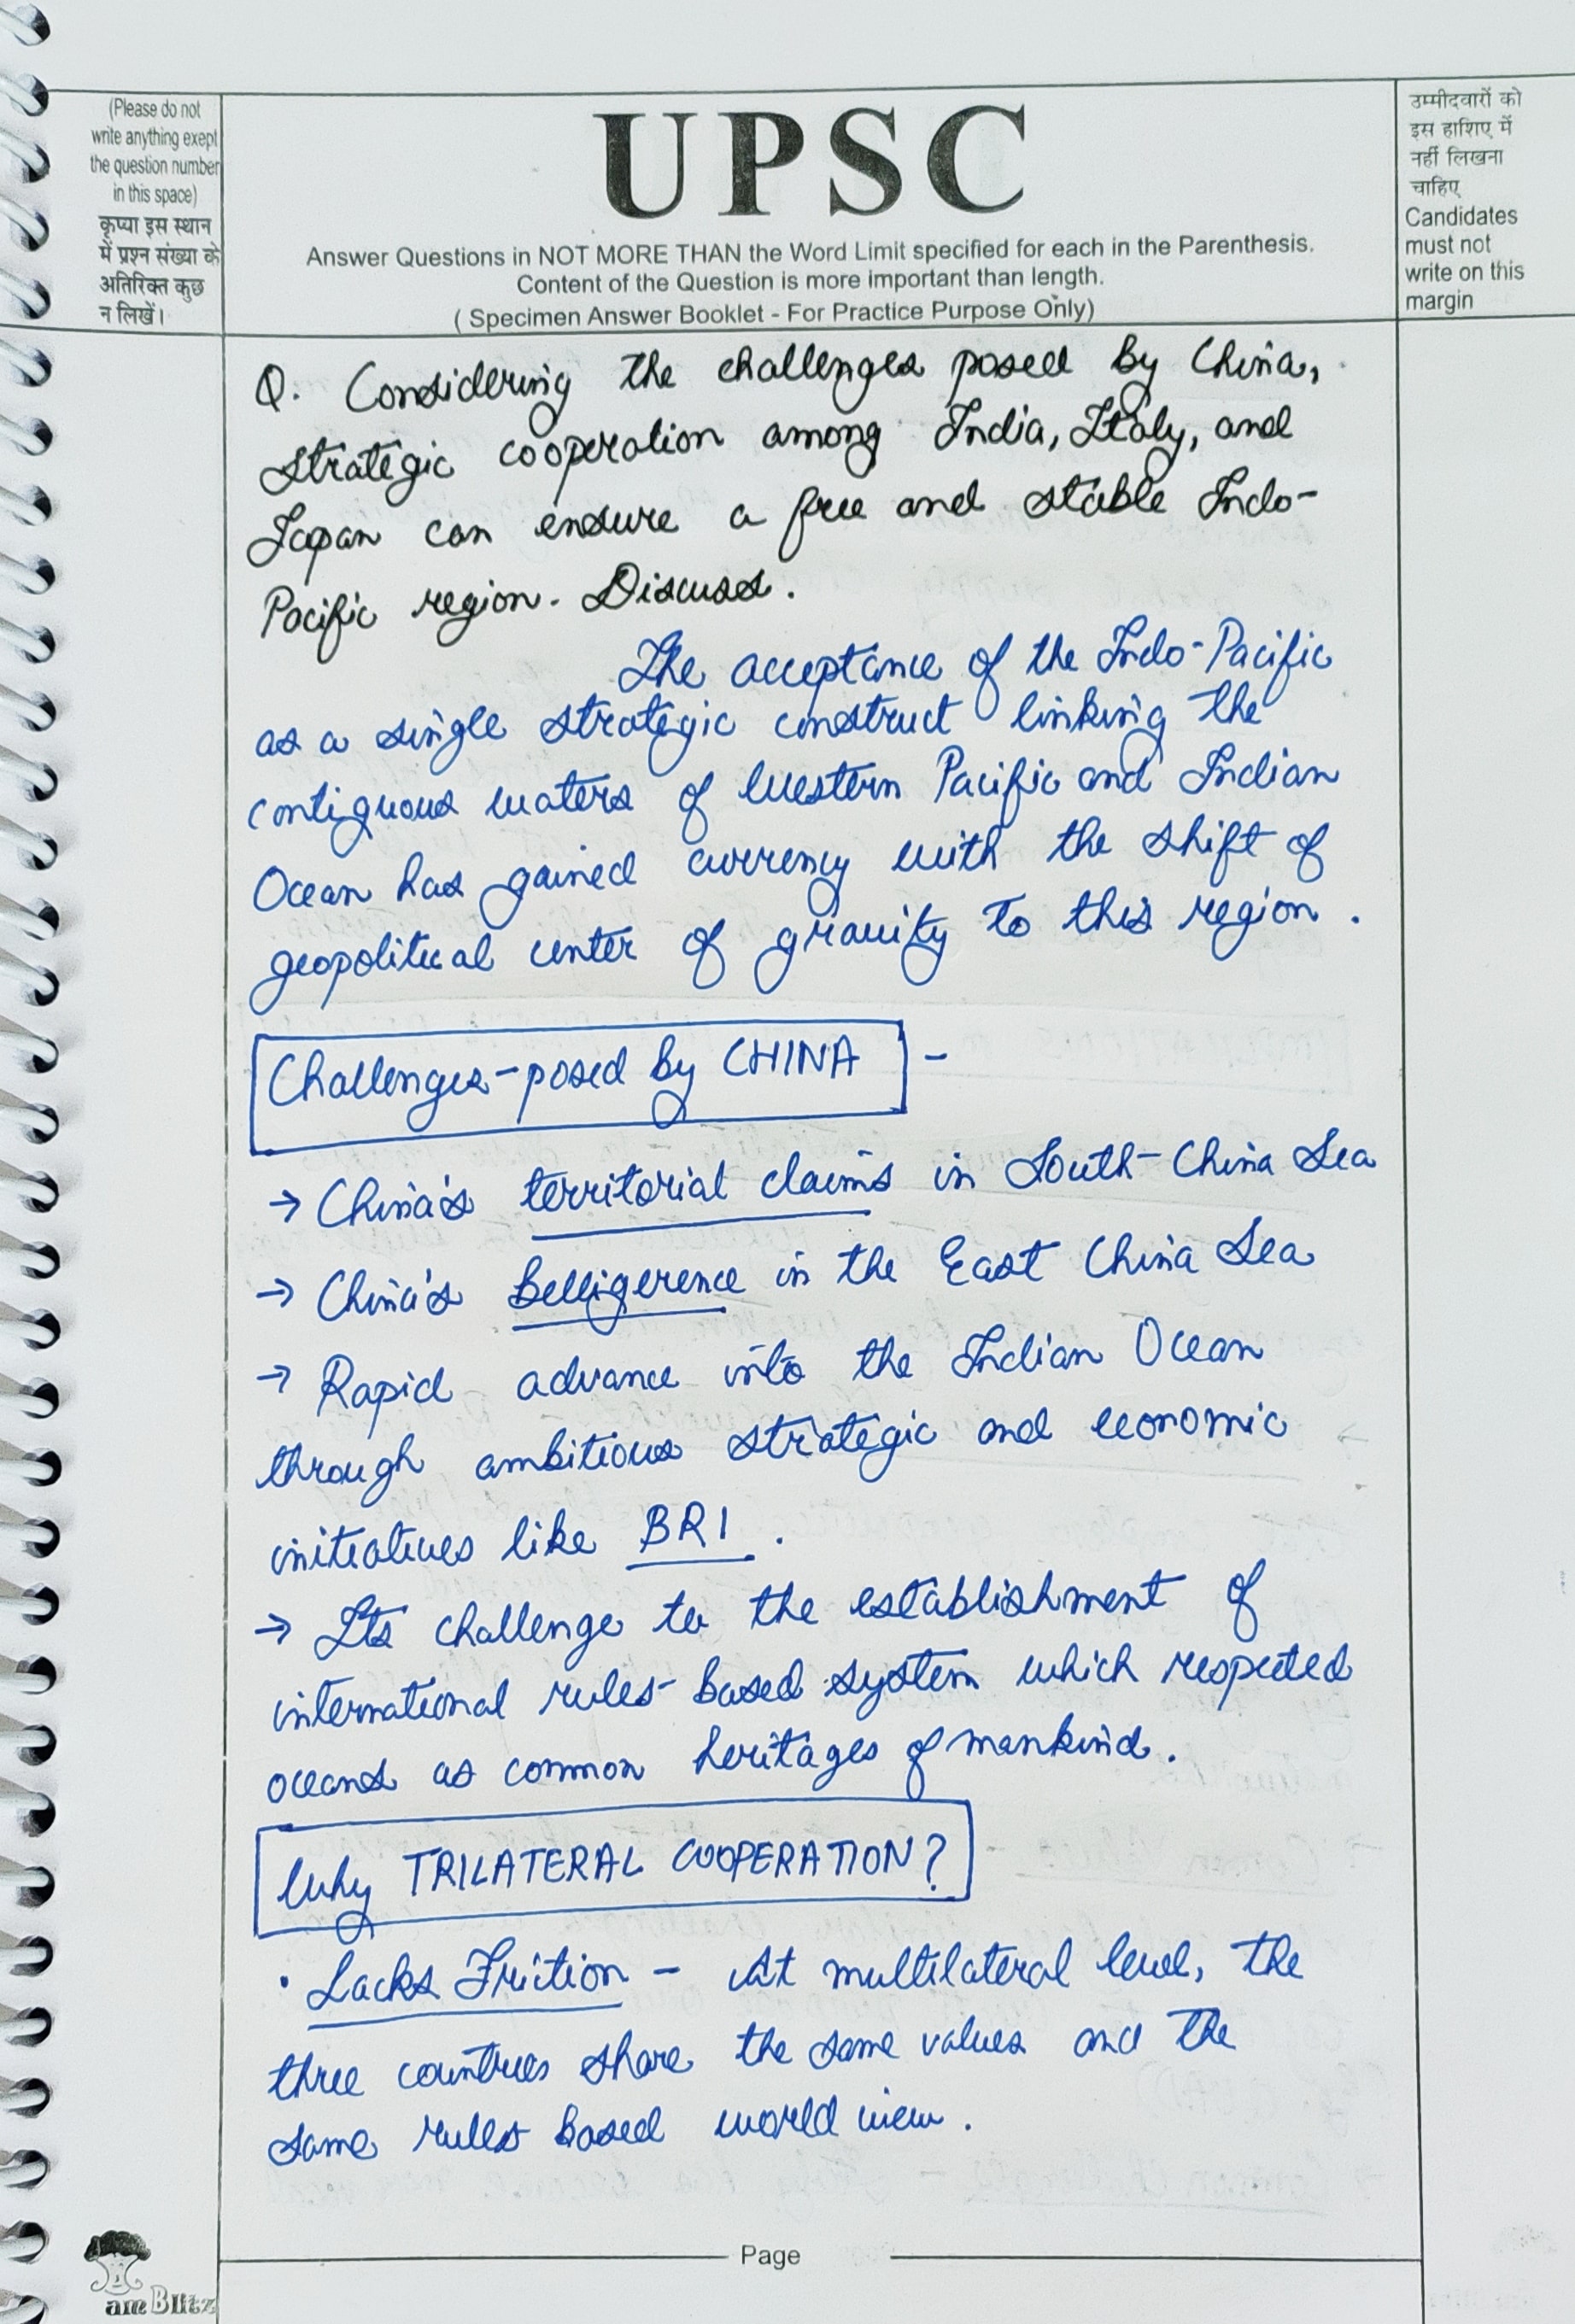 (Please do not
write anything exept
the question number
in this space)
कृप्या इस स्थान
में प्रश्न संख्या के
अतिरिक्त कुछ
न लिखें।
UPSC
Answer Questions in NOT MORE THAN the Word Limit specified for each in the Parenthesis.
Content of the Question is more important than length.
( Specimen Answer Booklet - For Practice Purpose Only)
उम्मीदवारों को
इस हाशिए में
नहीं लिखना
चाहिए
Candidates
must not
write on this
margin
Q. Considering the challenges posed by China,
strategic cooperation among India, Italy, and
Japan can ensure a free and stable Indo-
Pacific region. Discuss.
The acceptance of the Indo-Pacific
as a single strategic construct linking the
contiguous waters of Western Pacific and Indian
Ocean has gained currency with the shift of
geopolitical center of gravity to this region.
Challenges-posed by CHINA -
→ China's territorial claims in South-China Sea
→ China's Belligerence in the East China Sea
→ Rapid advance into the Indian Ocean
through ambitious strategic and economic
initiatives like BRI.
→ Its challenge to the establishment of
international rules-based system which respected
oceans as common heritages of mankind.
Why TRILATERAL COOPERATION?
• Lacks Friction - At multilateral level, the
three countries share the same values and the
same rules based world view.
Page
am Blitz